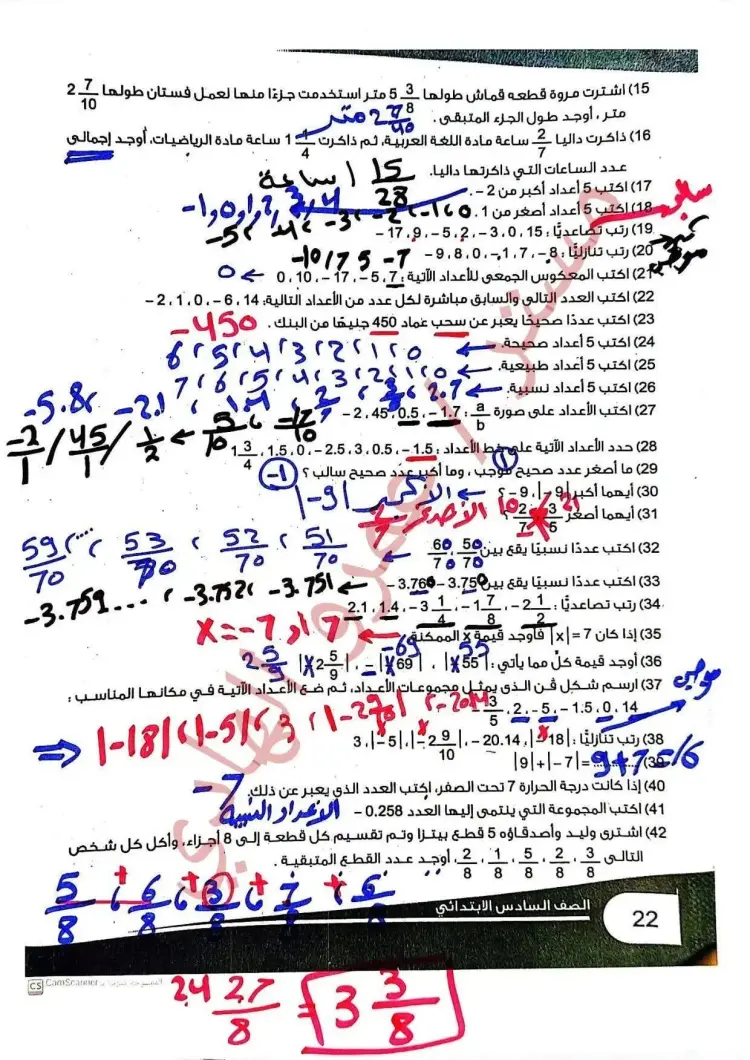 15) اشترت مروة قطعه قماش طولها 5 3/8 متر استخدمت جزءًا منها لعمل فستان طولها 2 7/10
متر ، أوجد طول الجزء المتبقى . متر 2 27/40
16) ذاكرت داليا 2/7 ساعة مادة اللغة العربية، ثم ذاكرت 1 1/4 ساعة مادة الرياضيات، أوجد إجمالى
عدد الساعات التي ذاكرتها داليا. 1 15/28 ساعة
17) اكتب 5 أعداد أكبر من 2 - . -1, 0, 1, 2, 3, 4
18) اكتب 5 أعداد أصغر من 1 . 0، -1، -2، -3، -4، -5
19) رتب تصاعديًّا : 15 ، 0 ، 3 - ، 2 ، 5 - ، 9 ، 17 -
20) رتب تنازليًّا : 8 - ، 7 ، 1 - ، 0 ، 8 ، 9 -
21) اكتب المعكوس الجمعى للأعداد الآتية : 7 ، 5 - ، 17 - ، 10 ، 0
22) اكتب العدد التالى والسابق مباشرة لكل عدد من الأعداد التالية: 14 ، 6 - ، 0 ، 1 ، 2 -
23) اكتب عددًا صحيحًا يعبر عن سحب عماد 450 جنيهًا من البنك . -450
24) اكتب 5 أعداد صحيحة. 0، 1، 2، 3، 4، 5، 6
25) اكتب 5 أعداد طبيعية. 0، 1، 2، 3، 4، 5، 6، 7
26) اكتب 5 أعداد نسبية.
27) اكتب الأعداد على صورة a/b : 1.7 - ، 0.5 ، 45 ، 2 -
-17/10 ، 5/10 ← 1/2 / 45/1 / -2/1
28) حدد الأعداد الآتية على خط الأعداد : 1.5 - ، 0.5 ، 3 ، 2.5 - ، 0 ، 1.5 ، 1 3/4
29) ما أصغر عدد صحيح موجب ، وما أكبر عدد صحيح سالب ؟ 1 -1
30) أيهما أكبر |9 -| ، 9 - ؟ الأكبر |-9|
31) أيهما أصغر 3/5 ، 2/7 ؟ الأصغر 2/7
32) اكتب عددًا نسبيًا يقع بين 50/70 ، 60/70 51/70 ، 52/70 ، 53/70 ، .... 59/70
33) اكتب عددًا نسبيًا يقع بين 3.750 - ، 3.760 - -3.751 ، -3.752 ، .... -3.759
34) رتب تصاعديًّا : 2 1/2 - ، 1 7/8 - ، 3 1/4 - ، 1.4 ، 2.1
35) إذا كان 7 = |x| فأوجد قيمة x الممكنة. x = -7 , 7
36) أوجد قيمة كلٍّ مما يأتي : |55| ، |69| - ، |2 5/9| 55 -69 2 5/9
37) ارسم شكل ڤن الذى يمثل مجموعات الأعداد، ثم ضع الأعداد الآتية في مكانها المناسب :
14 ، 0 ، 1.5 - ، 5 - ، 2 ، 3/5
38) رتب تنازليًّا : |18 -| ، 20.14 - ، |2 9/10 -| ، |5 -| ، 3
|-18| ، |-5| ، 3 ، |-2 9/10| ، -20.14
39) ......... =|7 -| + |9| 9+7=16
40) إذا كانت درجة الحرارة 7 تحت الصفر، اكتب العدد الذي يعبر عن ذلك. -7
41) اكتب المجموعة التي ينتمى إليها العدد 0.258 - الأعداد النسبية
42) اشترى وليد وأصدقاؤه 5 قطع بيتزا وتم تقسيم كل قطعة إلى 8 أجزاء، وأكل كل شخص
التالى 3/8 ، 2/8 ، 5/8 ، 1/8 ، 2/8 ، أوجد عدد القطع المتبقية .
5/8 + 6/8 + 3/8 + 7/8 + 6/8
الصف السادس الابتدائي
22
27/8 = 3 3/8
CS CamScanner